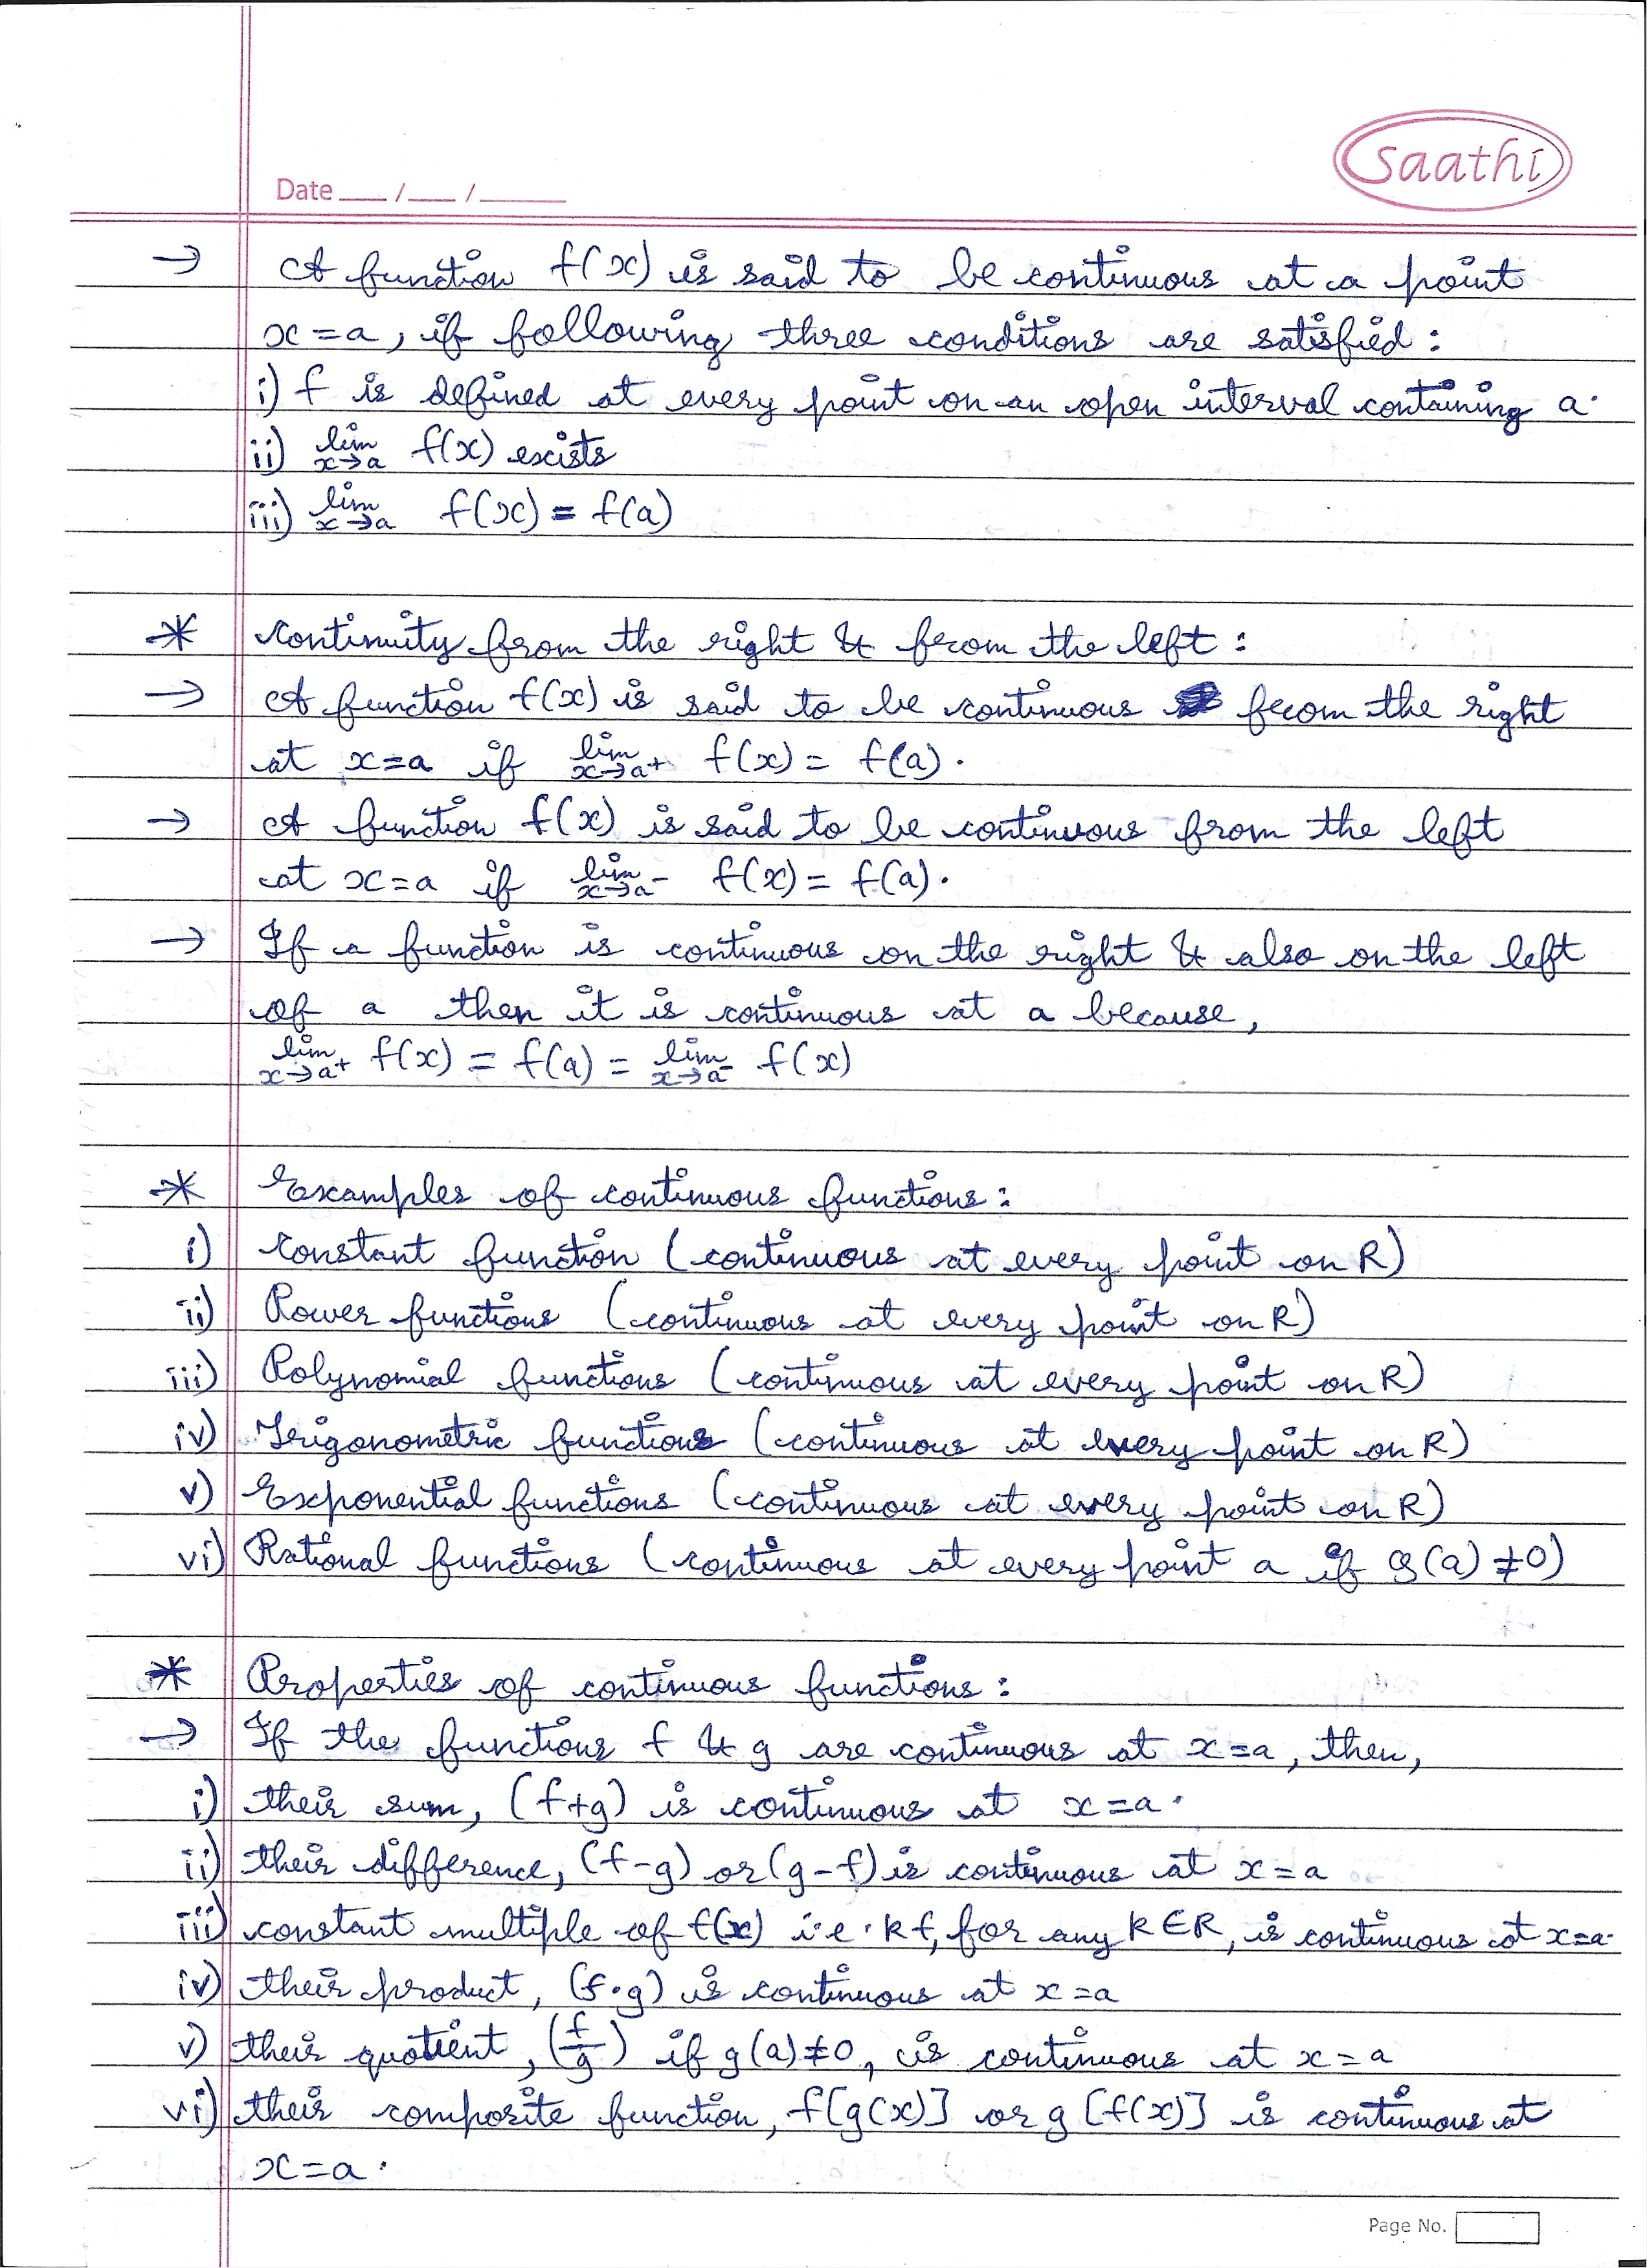 Saathi
Date ___/___/______
→ A function f(x) is said to be continuous at a point
x = a, if following three conditions are satisfied:
i) f is defined at every point on an open interval containing a.
ii) lim x→a f(x) exists
iii) lim x→a f(x) = f(a)
* Continuity from the right & from the left:
→ A function f(x) is said to be continuous from the right
at x=a if lim x→a+ f(x) = f(a).
→ A function f(x) is said to be continuous from the left
at x=a if lim x→a- f(x) = f(a).
→ If a function is continuous on the right & also on the left
of a then it is continuous at a because,
lim x→a+ f(x) = f(a) = lim x→a- f(x)
* Examples of continuous functions:
i) Constant function (continuous at every point on R)
ii) Power functions (continuous at every point on R)
iii) Polynomial functions (continuous at every point on R)
iv) Trigonometric functions (continuous at every point on R)
v) Exponential functions (continuous at every point on R)
vi) Rational functions (continuous at every point a if g(a) ≠ 0)
* Properties of continuous functions:
→ If the functions f & g are continuous at x=a, then,
i) their sum, (f+g) is continuous at x=a.
ii) their difference, (f-g) or (g-f) is continuous at x=a
iii) constant multiple of f(x) i.e. kf, for any k∈R, is continuous at x=a.
iv) their product, (f·g) is continuous at x=a
v) their quotient, (f/g) if g(a)≠0, is continuous at x=a
vi) their composite function, f[g(x)] or g[f(x)] is continuous at
x=a.
Page No.